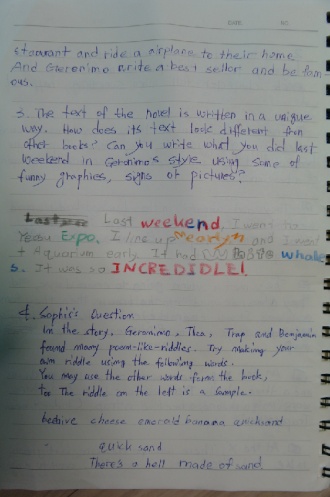 DATE NO.
staurant and ride a airplane to their home
And Gueronimo write a best sellor and be fam
ous.
3. The text of the novel is written in a unique
way. How does its text look different fron
other books? Can you write what you did last
weekend in Geronimo's style using some of
funny graphies, signs or pictures?
Last weekend, I went to
Yeosu Expo. I line up nearlyn and I went
t Aquarium early. It had whale
s. It was so INCREDIDLE!
4. Sophie's Question
In the story, Geronimo, Thea, Trap and Benjamin
found many poem-like-riddles. Try making your
own riddle using the following words.
You may use the other words from the book,
too The riddle on the left is a sample.
beehive cheese emerald banana anchward
quick sand
There's a hell made of sand